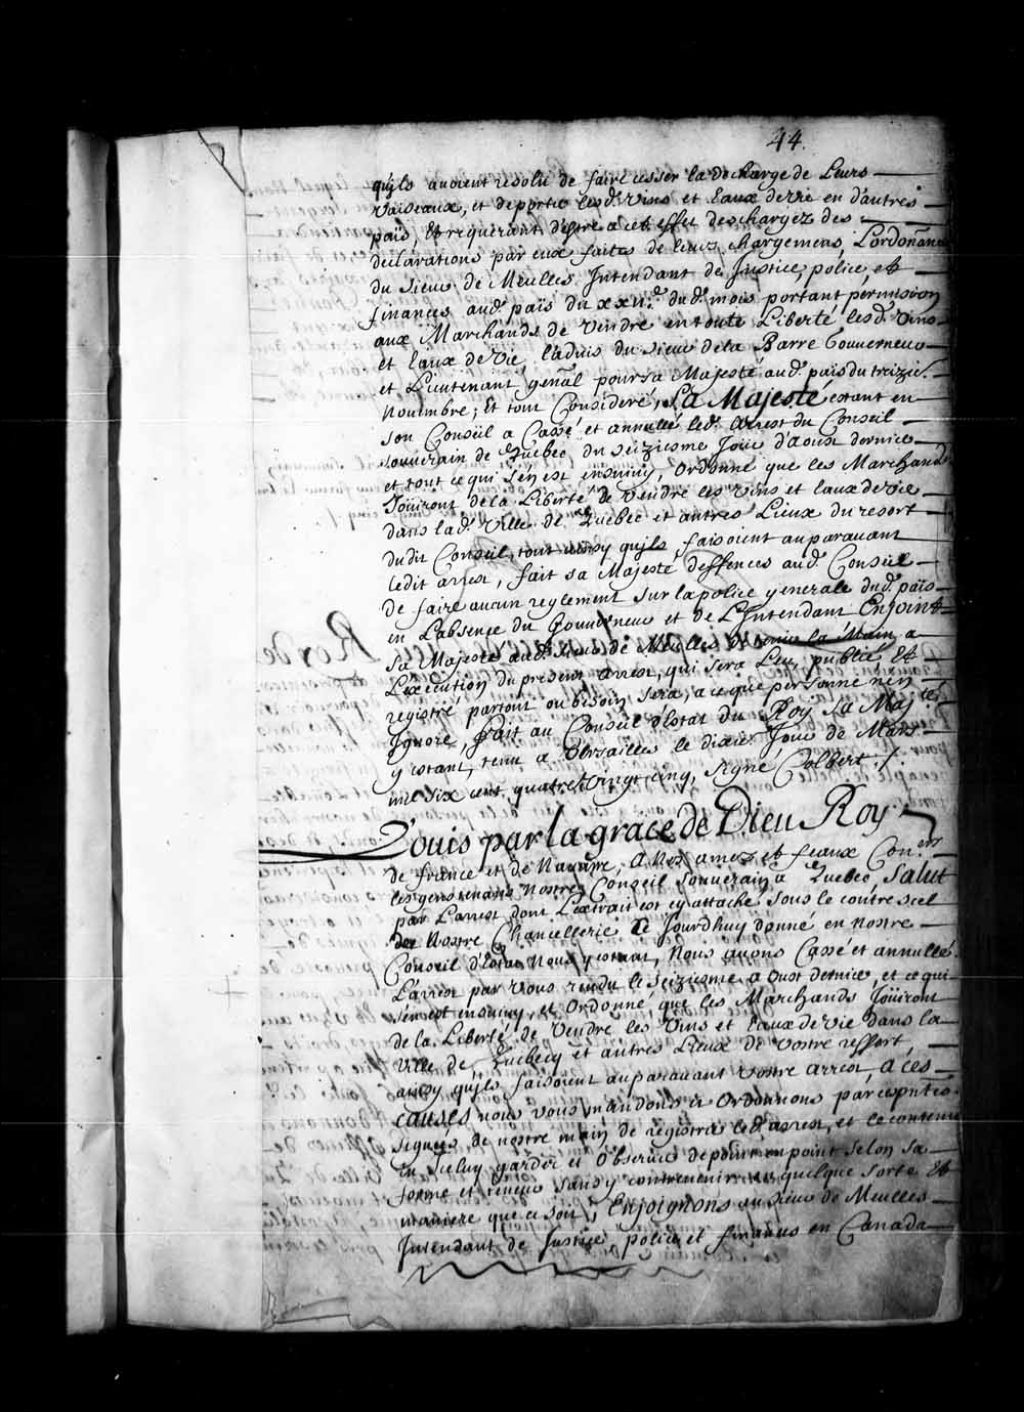 44.
quils auoient resolu de faire cesser la decharge de Leurs
Vaisseaux, et de porter lesd. Vins et Eaux de vie en d'autres
païs, Et requerant d'estre a cet effet deschargez des
declarations par eux faites de leurs chargemens, L'ordonance
du Sieur de Meulles Intendant de Justice, police, et
finances aud. païs du xxiie. dud. mois portant permission
aux Marchands de Vendre en toute Liberté lesd. Vins
et Eaux de vie, l'aduis du Sieur de la Barre Gouuerneur
et Lieutenant genãl pour sa Majesté aud. païs du treizie.
Nouembre; Et tout Consideré, Sa Majesté estant en
son Conseil a Cassé et annullé led. Arrest du Conseil
souuerain de Quebec du seiziesme Jour d'aoust dernier
et tout ce qui s'en est ensuiuy, Ordonne que les Marchands
Joüiront de la Liberté de Vendre les Vins et Eaux de vie
dans lad. Ville de Quebec et autres Lieux du resort
dudit Conseil, tout ainsy quils faisoient auparauant
ledit arrest, fait sa Majesté deffences aud. Conseil
de faire aucun reglement sur la police generale dud. païs
en L'absence du Gouuerneur et de L'Intendant Enjoint
sa Majesté aud. Sieur de Meulles de tenir la Main a
L'execution du present arrest, qui sera Leu, publié Et
registré partout ou besoin sera, a ce que personne n'en
Ignore, fait au Conseil d'Estat du Roy Sa Majté.
y estant, tenu a Versailles le dixie. Jour de Mars
mil six cent quatre Vingt cinq, Signé Colbert ./.
Louis par la grace de Dieu Roy
de france et de Nauarre, A Nos amez et feaux Coners.
les gens tenans Nostre Conseil souuerain a Quebec, Salut
par L'arrest dont L'extrait est cy attaché sous le contre scel
de Nostre Chancellerie Ce Jourdhuy donné en nostre
Conseil d'Estat Nous y estant, Nous auons Cassé et annullé
L'arrest par Vous rendu le seiziesme aoust dernier, et ce qui
s'en est ensuiuy, et Ordonné que les Marchands Joüiront
de la Liberté de Vendre les Vins et Eaux de vie dans la
Ville de Quebecq et autres Lieux de Vostre ressort,
ainsy quils faisoient auparauant Vostre arrest, A ces
causes nous vous mandons et Ordonnons par ces pntes.
signées de nostre main de registrer led. arrest, et le contenu
en Iceluy garder et Obseruer de point en point selon sa
forme et teneur sans y contreuenir en quelque sorte Et
maniere que ce soit, Enjoignons au Sieur de Meulles
Intendant de Justice, police et finances en Canada